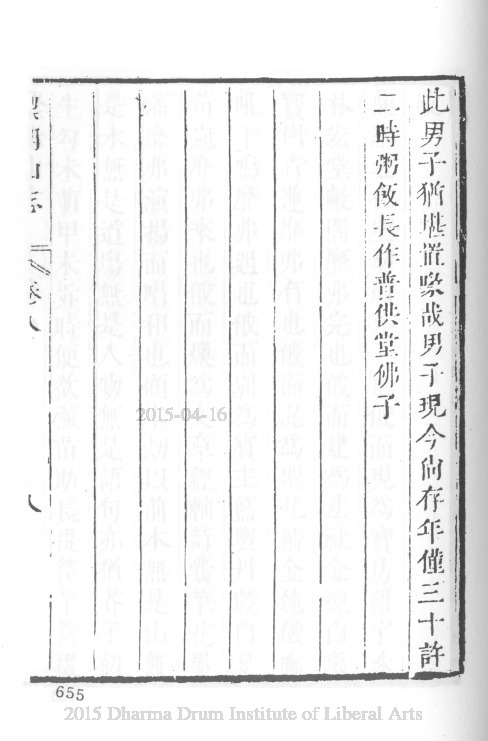 此男子猶堪置喙哉男子現今尚存年僅三十許
二時粥飯長作普供堂佛子
山志
卷八
八
2015-04-16
655
2015 Dharma Drum Institute of Liberal Arts